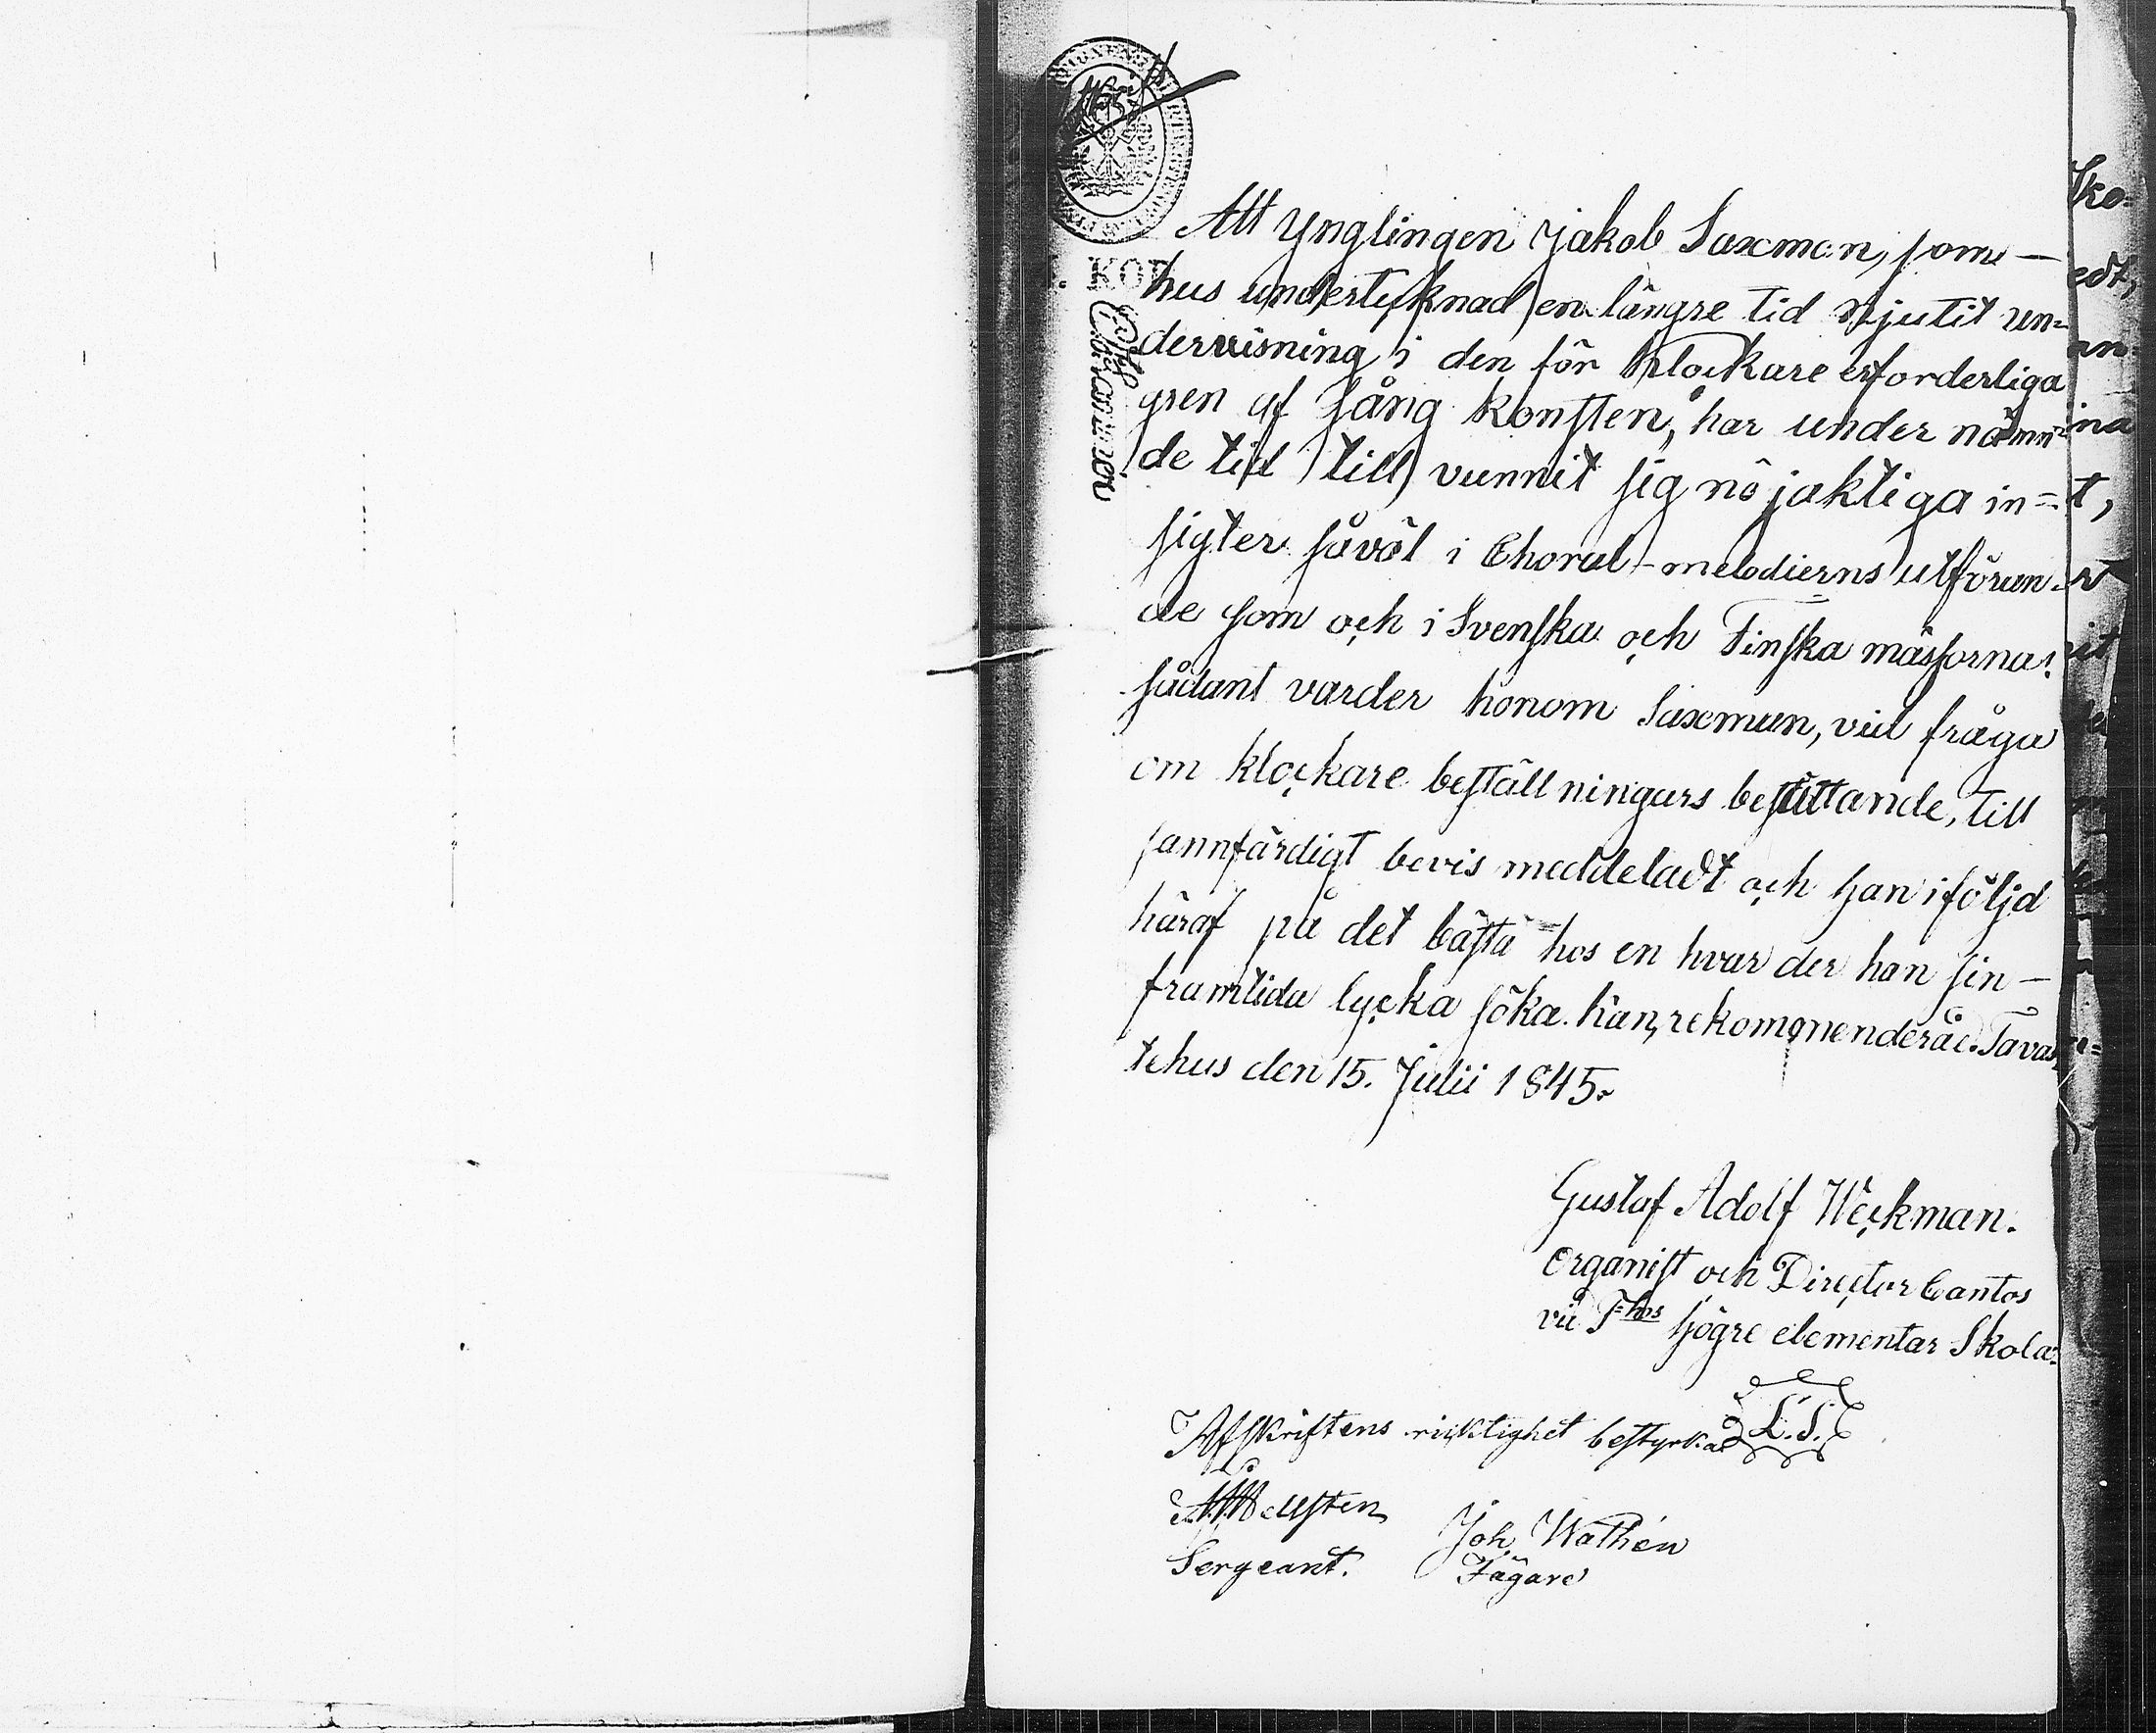 Att Ynglingen Jakob Saxman, som —
hus undertecknad en längre tid njutit un=
dervisning i den för Klockare erforderliga
gren af Sång konsten, har under nämn=
de tid till vunnit sig nöjaktiga in=
sigter såväl i Choral-melodierns utföran-
de som och i Svenska och Finska mässorna;
sådant varder honom Saxman, vid fråga
om klockare beställningars besättande, till
sannfärdigt bevis meddeladt och han i följd
häraf på det bästa hos en hvar der han sin —
framtida lycka söka kan, rekommenderad. Tavas
tehus den 15. Julii 1845.
Gustaf Adolf Weckman.
Organist och Director Cantos
vid T=hus högre elementar Skola.
Afskriftens riktighet bestyrka L.S.
Sergeant.
Joh. Wathén